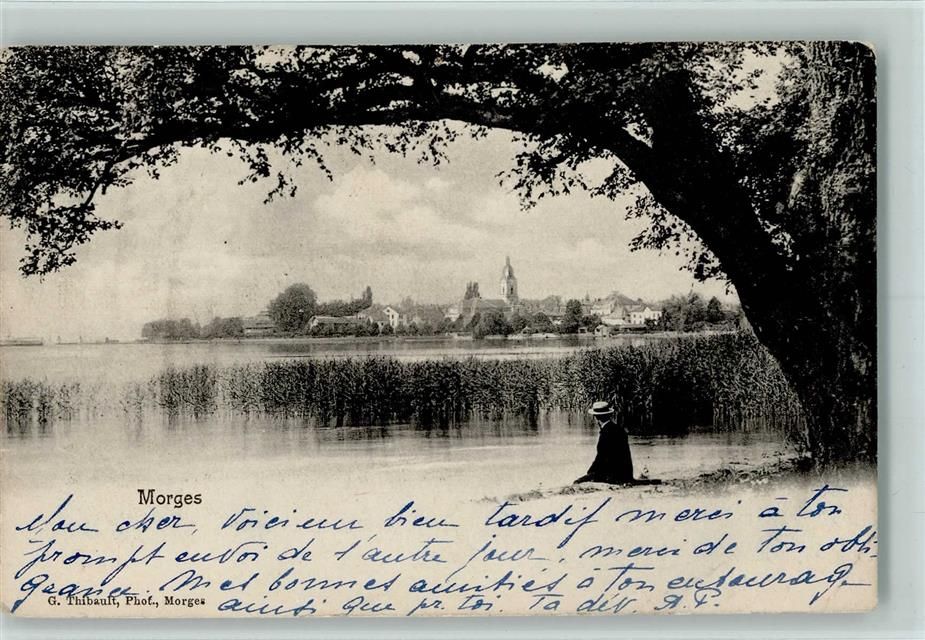 Morges
Mon cher, Voici un bien tardif merci à ton
prompt envoi de l'autre jour, merci de ton obli-
geance. Mes bonnes amitiés à ton entourage
G. Thibault, Phot., Morges
ainsi que pr. toi. Ta dév. A.P.